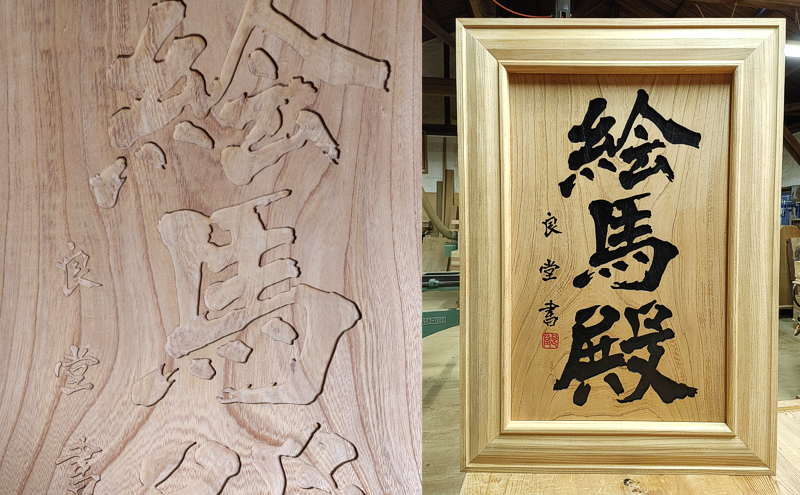 絵馬
良堂書
絵馬殿
良堂書